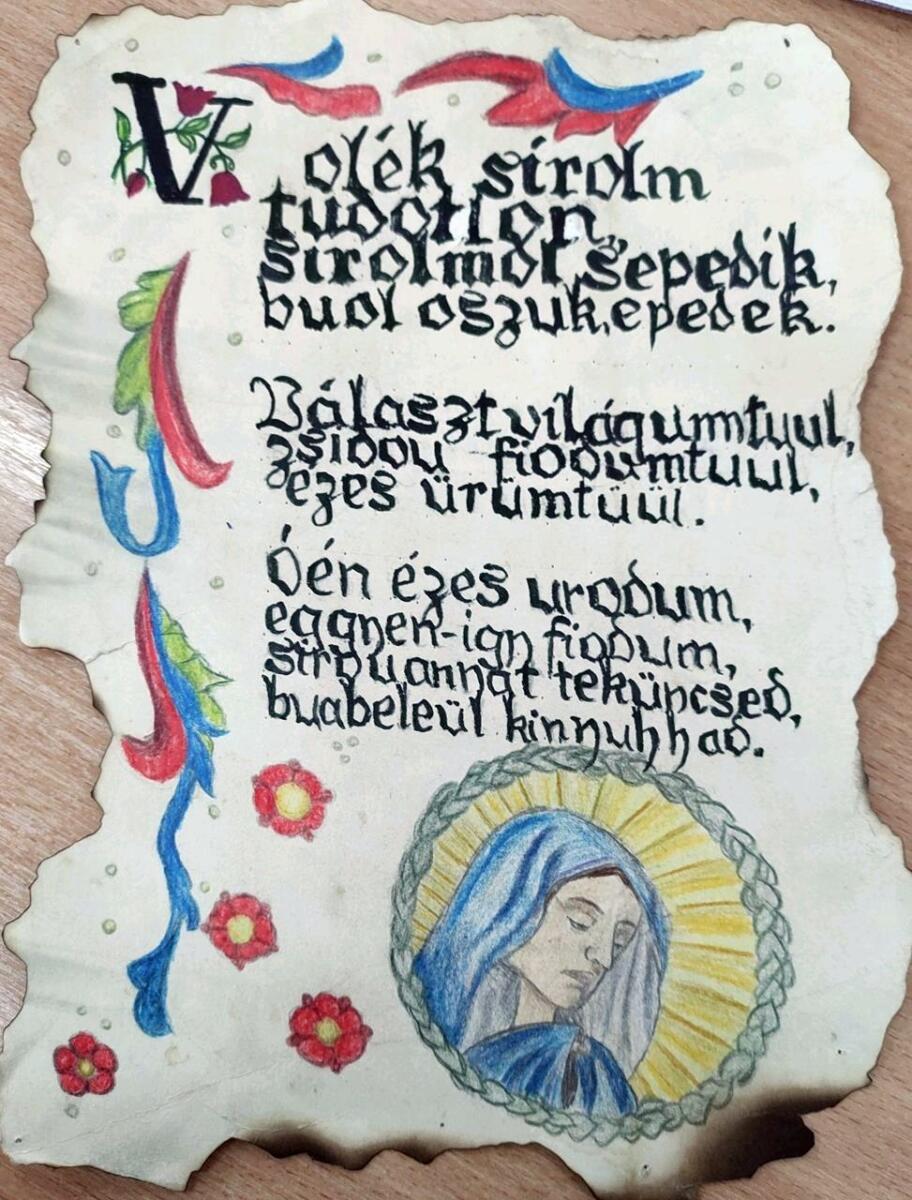 Volék sirolm
tudotlon,
sirolmol sepedik,
buol oszuk, epedek.
Választ világumtuul,
zsidou fiodumtuul,
ezes ürümtüül.
Óén ézes urodum,
eggyen-igy fiodum,
sirou annyát teküncsed,
buabeleül kinyuhhad.